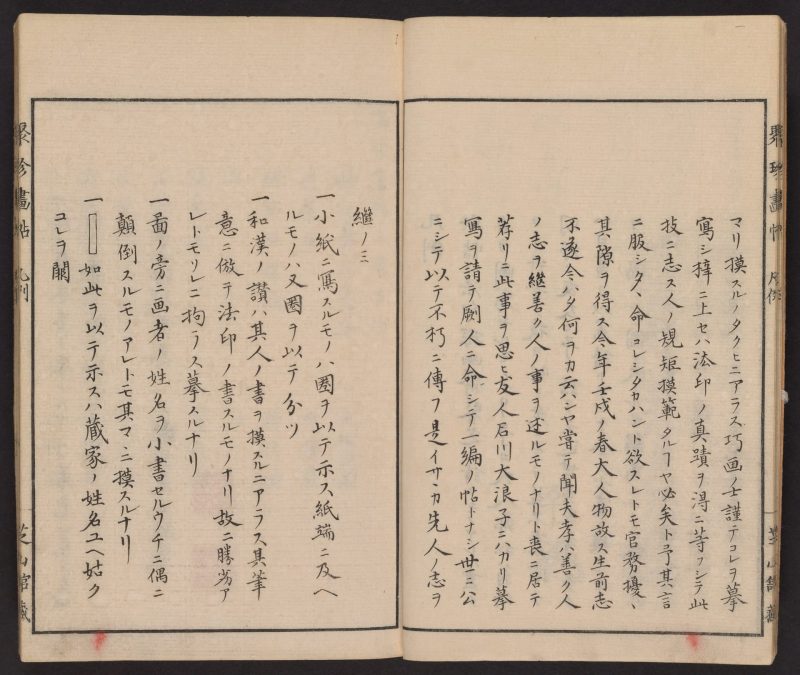 マリ摸スルノタクヒニアラス巧画ノ壬謹テコレヲ摹
寫シ梓ニ上セハ法印ノ真蹟ヲ得ニ等フシテ此
技ニ志ス人ノ規矩摸範タルヿヤ必矣ト予其言
ニ服シタヽ命コレシタカハント欲スレトモ官務擾ヽ
其隙ヲ得ス今年壬戌ノ春大人物故ス生前志
不遂今ハタ何ヲカ云ハンヤ嘗テ聞夫孝ハ善ク人
ノ志ヲ継善ク人ノ事ヲ述ルモノナリト喪ニ居テ
荐リニ此事ヲ思ヒ友人石川大浪子ニハカリ摹
寫ヲ請テ剞人ニ命シテ一編ノ帖トナシ世ニ公
ニシテ以テ不朽ニ傳フ是イサヽカ先人ノ志ヲ
繼ノミ
一小紙ニ寫スルモノハ圏ヲ以テ示ス紙端ニ及ヘ
ルモノハ又圏ヲ以テ分ツ
一和漢ノ讃ハ其人ノ書ヲ摸スルニアラス其筆
意ニ倣テ法印ノ書スルモノナリ故ニ勝劣ア
レトモソレニ拘ラス摹スルナリ
一啚ノ旁ニ画者ノ姓名ヲ小書セルウチニ偶ニ
顛倒スルモノアレトモ其マヽニ摸スルナリ
一 如此ヲ以テ示スハ蔵家ノ姓名ユヘ姑ク
コレヲ闕
聚珍畫帖 凡例
芝山館藏